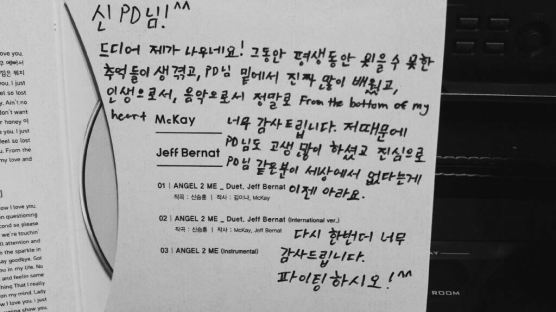 신 PD님! ^^
드디어 제가 나우네요! 그동안 평생동안 잊을수 못한
추억들이 생겼고, PD님 밑에서 진짜 많이 배웠고,
인생으로서, 음악으로서 정말로 From the bottom of my
heart 너무 감사드립니다. 저때문에
McKay
PD님도 고생 많이 하셨고 진심으로
Jeff Bernat
PD님 같은분이 세상에서 없다는게
이젠 아라요.
01 | ANGEL 2 ME _ Duet. Jeff Bernat
작곡 : 신승훈 | 작사 : 김이나, McKay
02 | ANGEL 2 ME _ Duet. Jeff Bernat (International ver.)
작곡 : 신승훈 | 작사 : McKay, Jeff Bernat
다시 한번더 너무
03 | ANGEL 2 ME (Instrumental)
감사드립니다.
파이팅하시오! ^^
ROOM
ove you.
you. I just
eel so lost
u. From the
my love and
w I love you.
on questioning
cond so please
we're touchin'
attention and
the sparkle in